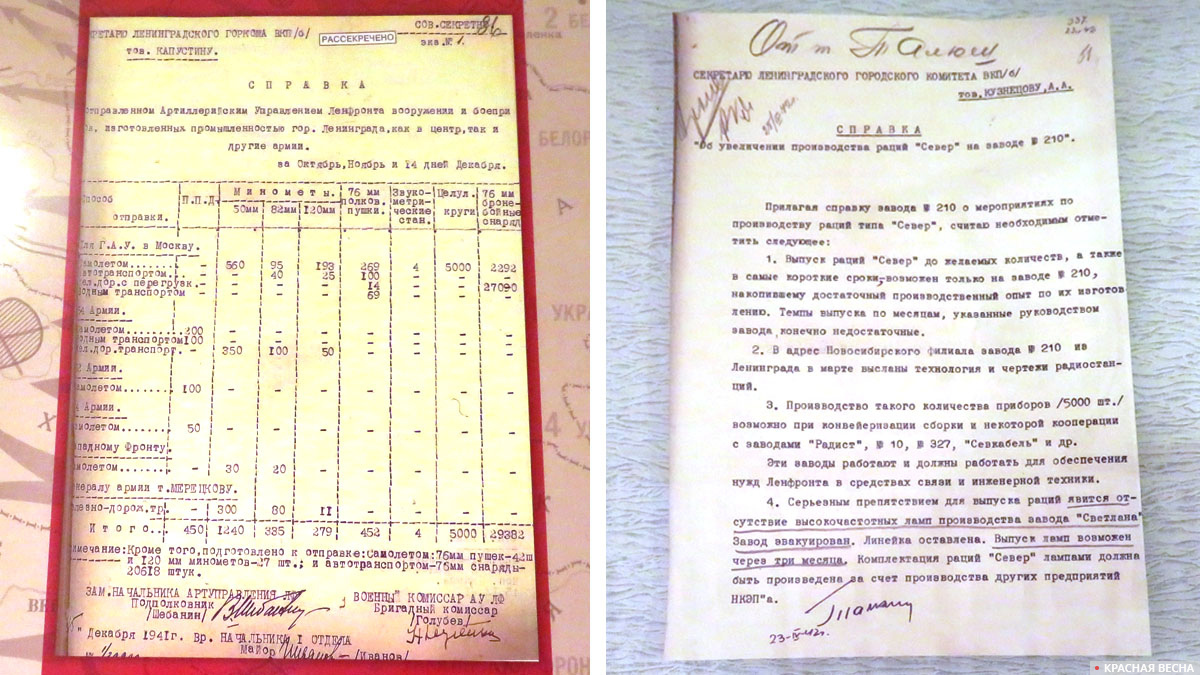 СОВ.СЕКРЕТНО
86
КРЕТАРЮ ЛЕНИНГРАДСКОГО ГОРКОМА ВКП/б/
РАССЕКРЕЧЕНО
экз.№ 1.
тов. КАПУСТИНУ.
С П Р А В К А
отправленном Артиллерийским Управлением Ленфронта вооружении и боепри
ов, изготовленных промышленностью гор. Ленинграда,как в центр,так и
другие армии.
за Октябрь,Ноябрь и 14 дней Декабря.
Способ отправки. П.П.Д. М и н о м е т ы. 50мм 82мм 120мм 76 мм полков. пушки. Звуко-метри-ческие стан. Целул. круги 76 мм броне-бойные снаряд
Для Г.А.У. в Москву.
амолетом....... - 560 95 193 269 4 5000 2292
автотранспортом... - - 40 25 100 - - -
ел.дор.с перегрузк. - - - - 14 - - 27090
одным транспортом - - - - 69 - - -
4 Армии.
амолетом........ 200 - - - - - - -
одным транспортом 100 - - - - - - -
ел.дор.транспорт. - 350 100 50 - - - -
2 Армий.
амолетом....... 100 - - - - - - -
Армии.
амолетом....... 50 - - - - - - -
ападному Фронту.
амолетом....... - 30 20 - - - - -
енералу армии т.МЕРЕЦКОВУ.
елезно-дорож.тр. - 300 80 11 - - - -
И т о г о.. 450 1240 335 279 452 4 5000 29382
имечание:Кроме того,подготовлено к отправке:Самолетом:76мм пушек-42ш
и 120 мм минометов-27 шт.; и автотранспортом-76мм снаряды-
20618 штук.
ЗАМ.НАЧАЛЬНИКА АРТУПРАВЛЕНИЯ ЛФ ВОЕННЫЙ КОМИССАР АУ ЛФ
Подполковник Бригадный комиссар
/Шебанин/ /Голубев/
" Декабря 1941г. Вр. НАЧАЛЬНИКА I ОТДЕЛА
Майор /Иванов/
От т
СЕКРЕТАРЮ ЛЕНИНГРАДСКОГО ГОРОДСКОГО КОМИТЕТА ВКП/б/
тов.КУЗНЕЦОВУ,А.А.
С П Р А В К А
"Об увеличении производства раций "Север" на заводе № 210".
Прилагая справку завода № 210 о мероприятиях по
производству раций типа "Север", считаю необходимым отме-
тить следующее:
1. Выпуск раций "Север" до желаемых количеств, а также
в самые короткие сроки, возможен только на заводе № 210,
накопившему достаточный производственный опыт по их изготов
лению. Темпы выпуска по месяцам, указанные руководством
завода, конечно недостаточные.
2. В адрес Новосибирского филиала завода № 210 из
Ленинграда в марте высланы технология и чертежи радиостан-
ций.
3. Производство такого количества приборов /5000 шт./
возможно при конвейеризации сборки и некоторой кооперации
с заводами "Радист", № 10, № 327, "Севкабель" и др.
Эти заводы работают и должны работать для обеспечения
нужд Ленфронта в средствах связи и инженерной техники.
4. Серьезным препятствием для выпуска раций явится от-
сутствие высокочастотных ламп производства завода "Светлана"
Завод эвакуирован. Линейка оставлена. Выпуск ламп возможен
через три месяца. Комплектация раций "Север" лампами должна
быть произведена за счет производства других предприятий
НКЭП"а.
КРАСНАЯ ВЕСНА